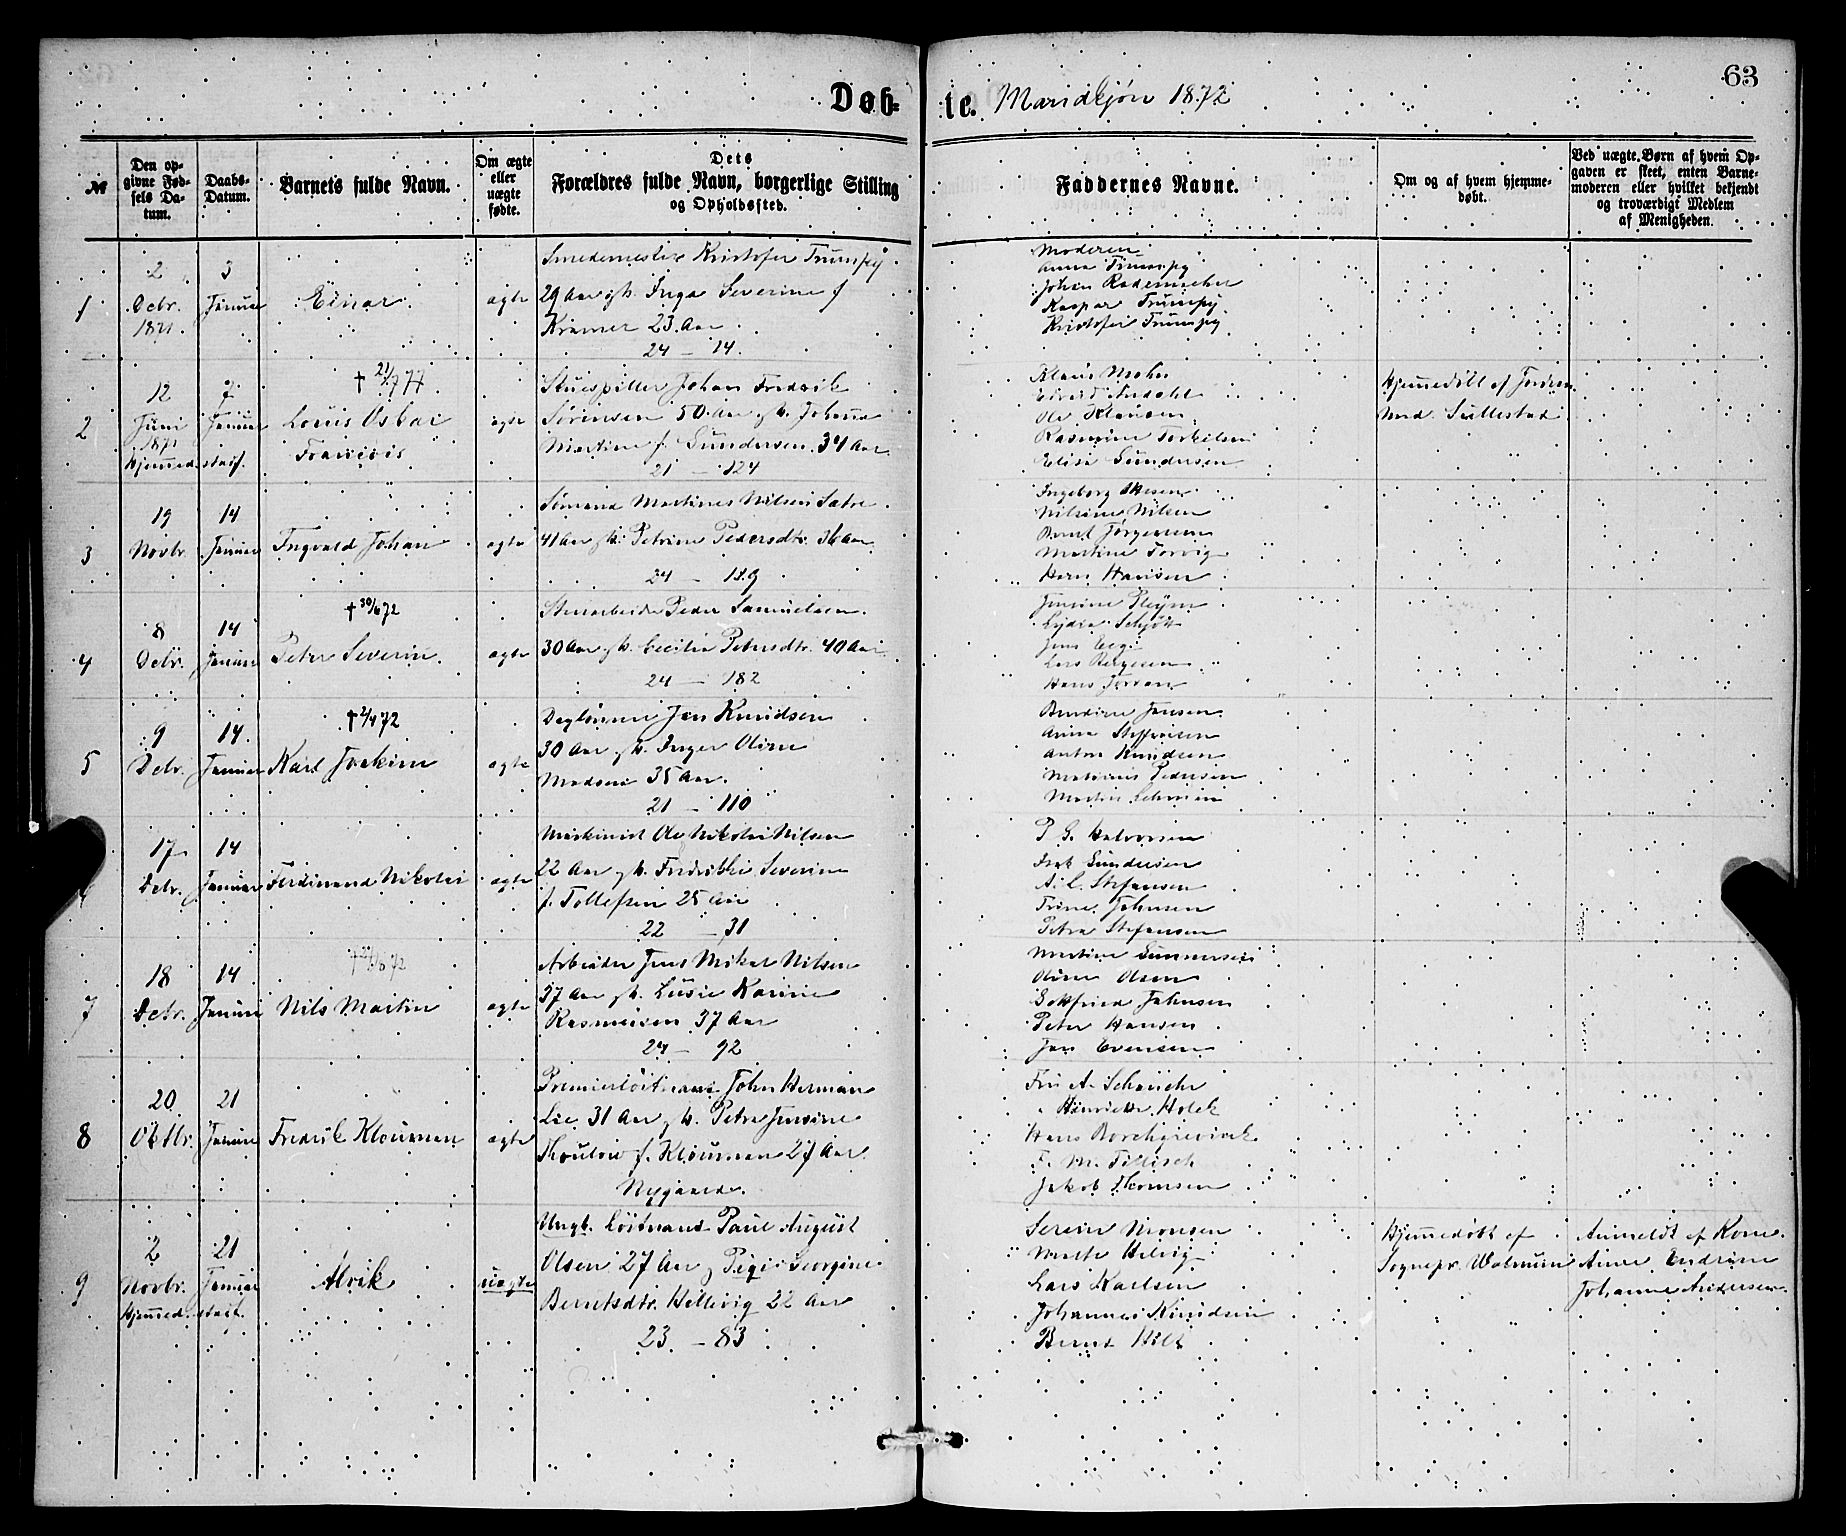 63
Døb= te. Mandkjøn 1872
№
Den opgivne Fødsels Datum.
Daabs-Datum.
Barnets fulde Navn.
Om ægte eller uægte fødte.
Dets Forældres fulde Navn, borgerlige Stilling og Opholdssted.
Faddernes Navne.
Om og af hvem hjemmedøbt.
Ved uægte Børn af hvem Opgaven er skeet, enten Barnemoderen eller hvilket bekjendt og troværdigt Medlem af Menigheden.
1
2 Decbr. 1871.
3 Januar
Einar.
ægte
Smedemester Kristofer Trumpy
29 Aar g h. Inga Severine f
Krämer 23 Aar.
24 – 14.
Moderen
Anna Trumpy
Johan Rademacher
Kaspar Trumpy
Kristofer Trumpy
2
12 Juni 1871
Hjemmed. stadf.
7 Januar
† 21/7 77
Louis Oskar
Francois
ægte
Skuespiller Johan Fredrik
Sørensen 50 Aar g h. Johanne
Martine f. Gundersen 34 Aar
21 – 124
Klaus Mohn
Ole Klausen
Rasmine Torkilsen
Elise Gundersen
Hjemmedøbt af Jordem
3
19 Novbr.
14 Januar
Ingvald Johan
ægte
Sømand Martines Nilsen Sætre
41 Aar g h. Petrine Pedersdtr. 36 Aar
24 – 189
Nilsine Nilsen
Bernt Jørgensen
Hans Hansen
4
8 Decbr.
14 Januar
† 30/6 72
Peter Severin.
ægte
Stenarbeider Peder Samuelsen
30 Aar g h. Cecilie Petersdtr. 40 Aar
24 – 182
Jensine Pleym
Lydia Schjøtt
Lars Børgesen
5
9 Decbr.
14 Januar
† 2/4 72
Karl Joakim
ægte
Daglønner Jan Knudsen
30 Aar g h. Inger Oline
Madsen 35 Aar.
21 – 110
Bendine Jansen
Anna Steffensen
Anton Knudsen
Mathias Pedersen
17 Decbr.
14 Januar
Ferdinand Nikolai
ægte
Maskinist Ole Nikolai Nilsen
22 Aar g h. Fredrikke Severine
f. Tollefsen 25 Aar
22 – 31
P G. Halvorsen
Isak Gundersen
A. C. Stefansen
Trine Johnsen
Petra Stefansen
7
18 Decbr.
14 Januar
Nils Martin
ægte
Arbeider Jens Mikal Nilsen
37 Aar g h. Lusie Karine
Rasmusen 37 Aar
24 – 92
Martine Gunnersen
Oline Olsen
Gottfried Johnsen
Peter Hansen
Jan Evensen
8
20 Oktbr.
21 Januar
Fredrik Klouman
ægte
Premierløitnant John Herman
Lie 31 Aar g h. Petra Jensine
Thoulow f. Klouman 27 Aar
Nygaard.
Fru A. Schwiehr
" Henriette Holck
Hans Borchgrevinck
F. M. Tillisch
Jakob Thomsen
9
2 Novbr.
Hjemmed. stadf.
21 Januar
Alrik
uægte
Ungk. Løitnant Paul August
Olsen 27 Aar g Pige Georgine
Berntsdtr. Hellevig 22 Aar
23 – 83
Serine Monsen
Marthe Helvig
Lars Karlsen
Johannes Knudsen
Bernt Hilt
Hjemmedøbt af
Sognepr. Walnum
Anmeldt af Kone
Anne Endrine
Johanne Andersen.